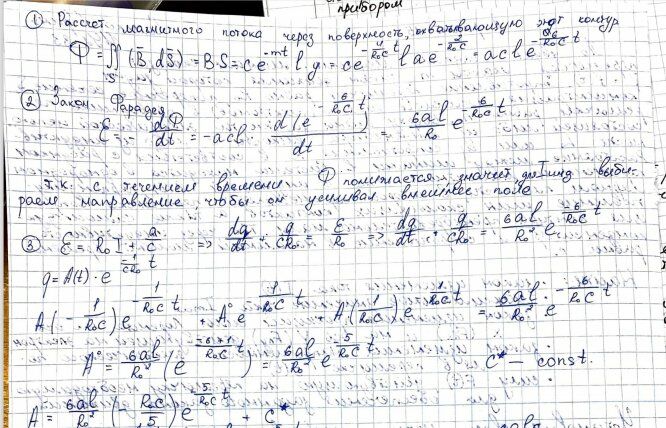 прибором
① Рассчет магнитного потока через поверхность, охватывающую этот контур
Φ = ∬_S (B̄, dS̄) = B·S = c·e^{-mt} · l · y = c e^{-\frac{4}{R_0C}t} l a e^{-\frac{2}{R_0C}t} = a c l e^{-\frac{6}{R_0C}t}
② Закон Фарадея
ℰ = - \frac{dΦ}{dt} = -acl · \frac{d(e^{-\frac{6}{R_0C}t})}{dt} = \frac{6al}{R_0} e^{-\frac{6}{R_0C}t}
т.к. с течением времени Φ понижается значит, для Iинд выби-
раем направление чтобы он усиливал внешнее поле
③ ℰ = R_0 I + \frac{q}{C} => \frac{dq}{dt} + \frac{q}{CR_0} = \frac{ℰ}{R_0} => \frac{dq}{dt} + \frac{q}{CR_0} = \frac{6al}{R_0^2} e^{-\frac{6}{R_0C}t}
q = A(t) · e^{-\frac{1}{CR_0}t}
A(-\frac{1}{R_0C}) e^{-\frac{1}{R_0C}t} + A° e^{-\frac{1}{R_0C}t} + A(\frac{1}{R_0C}) e^{-\frac{1}{R_0C}t} = \frac{6al}{R_0^2} e^{-\frac{6}{R_0C}t}
A° = \frac{6al}{R_0^2} (e^{\frac{-6+1}{R_0C}t}) = \frac{6al}{R_0^2} e^{-\frac{5}{R_0C}t} C* - const.
A = \frac{6al}{R_0^2} (-\frac{R_0C}{5}) e^{-\frac{5}{R_0C}t} + C*